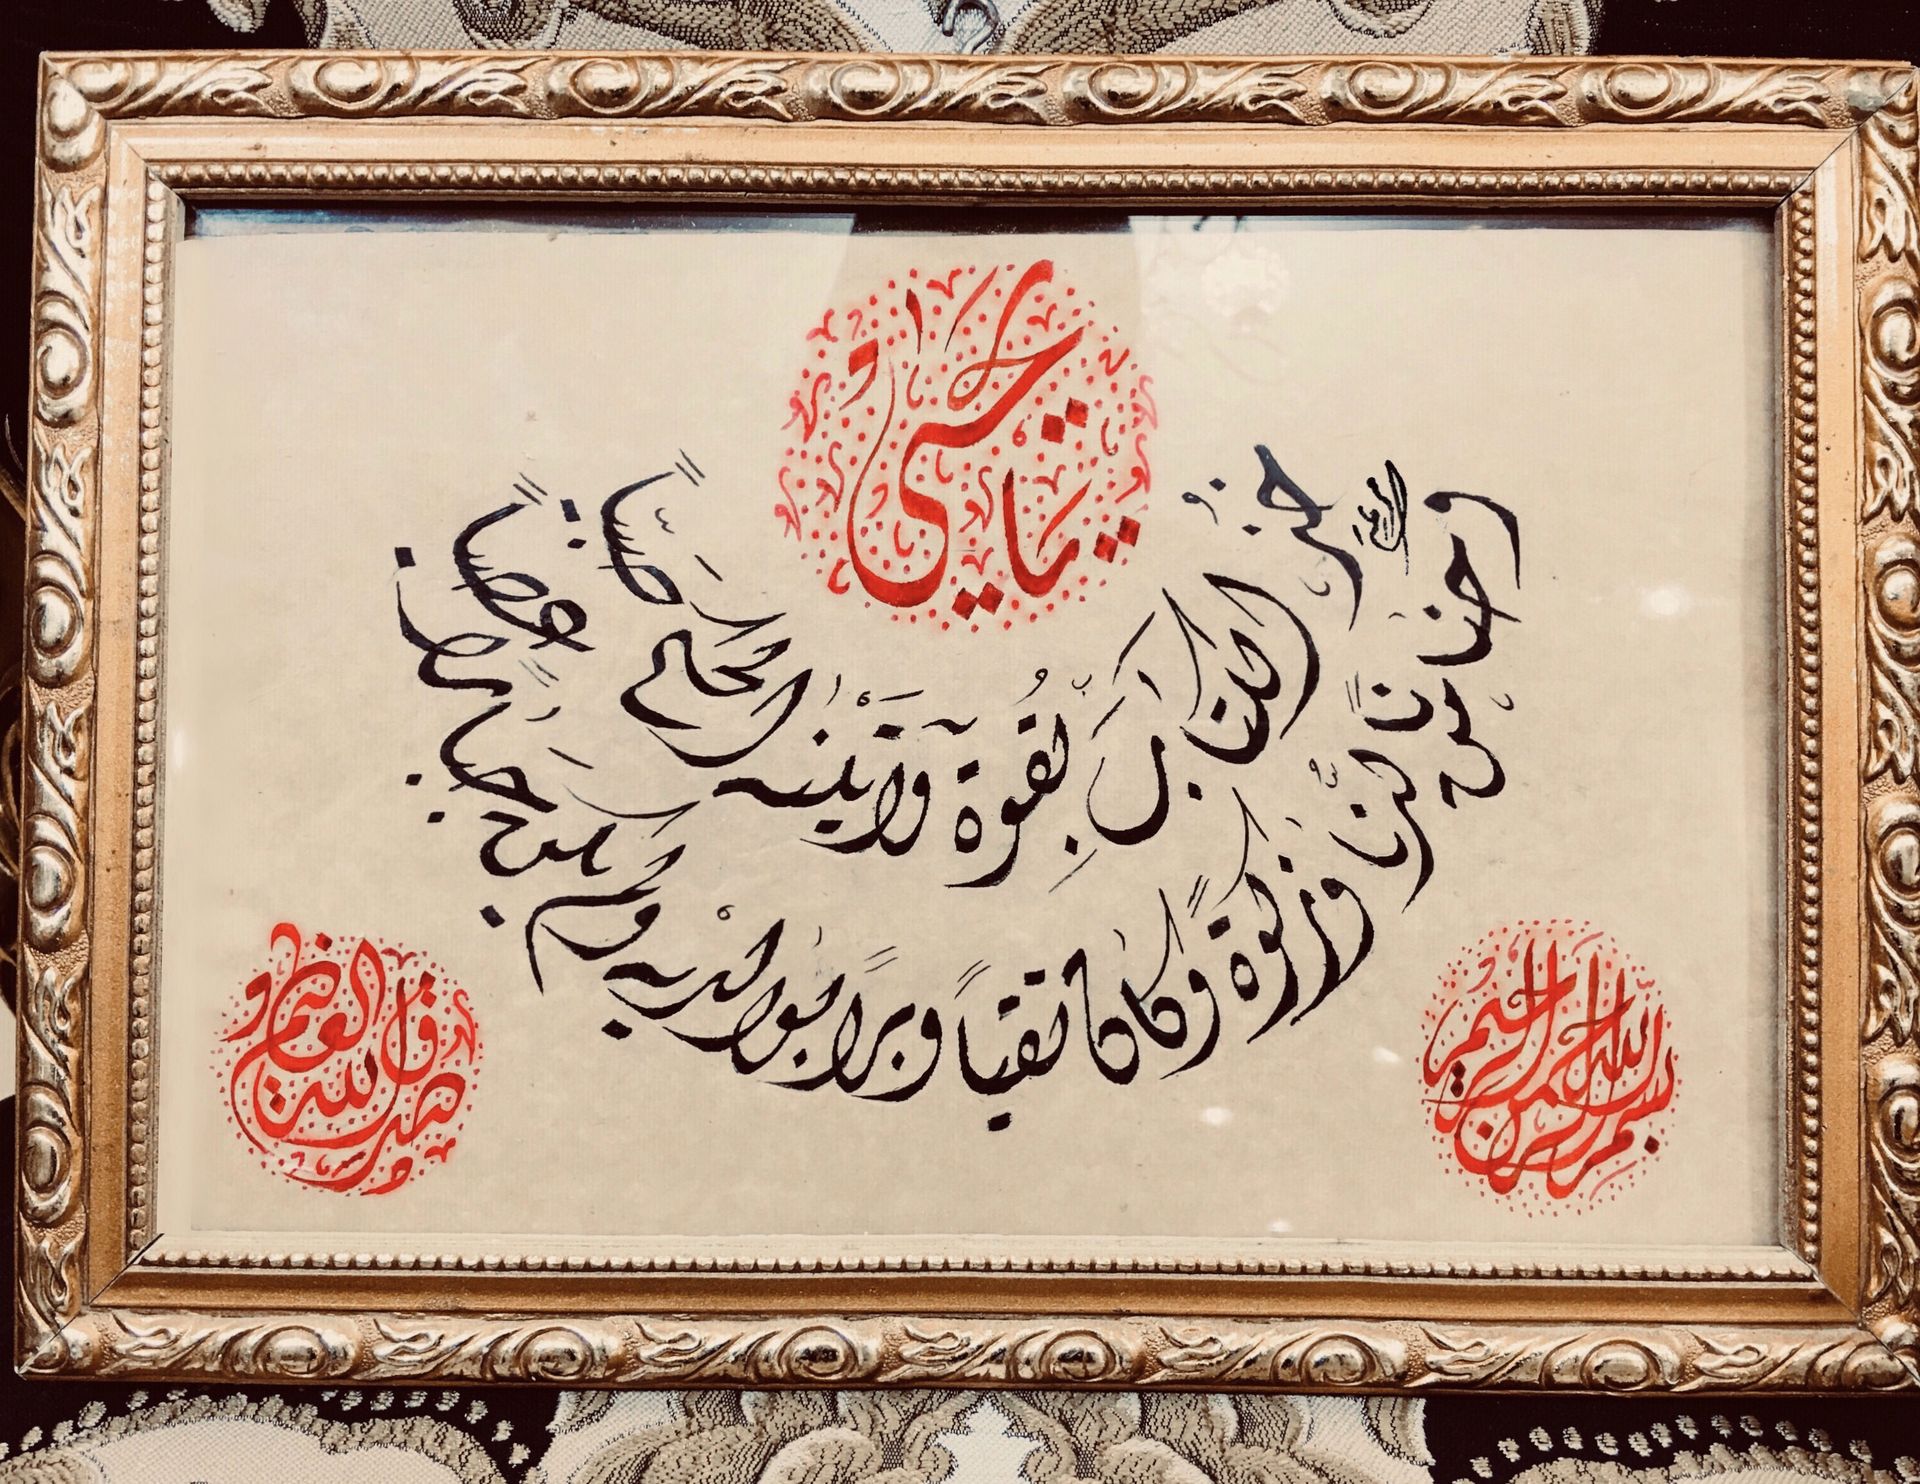 بسم الله الرحمن الرحيم
يا يحيى
خذ الكتابَ بِقُوة وَآتَيْنٰه الحكم صَبياً
وحناناً من لدُنّا وزكوةً وكان تقياً وبراً بوالديه ولم يكن جباراً عصياً
صدق الله العظيم